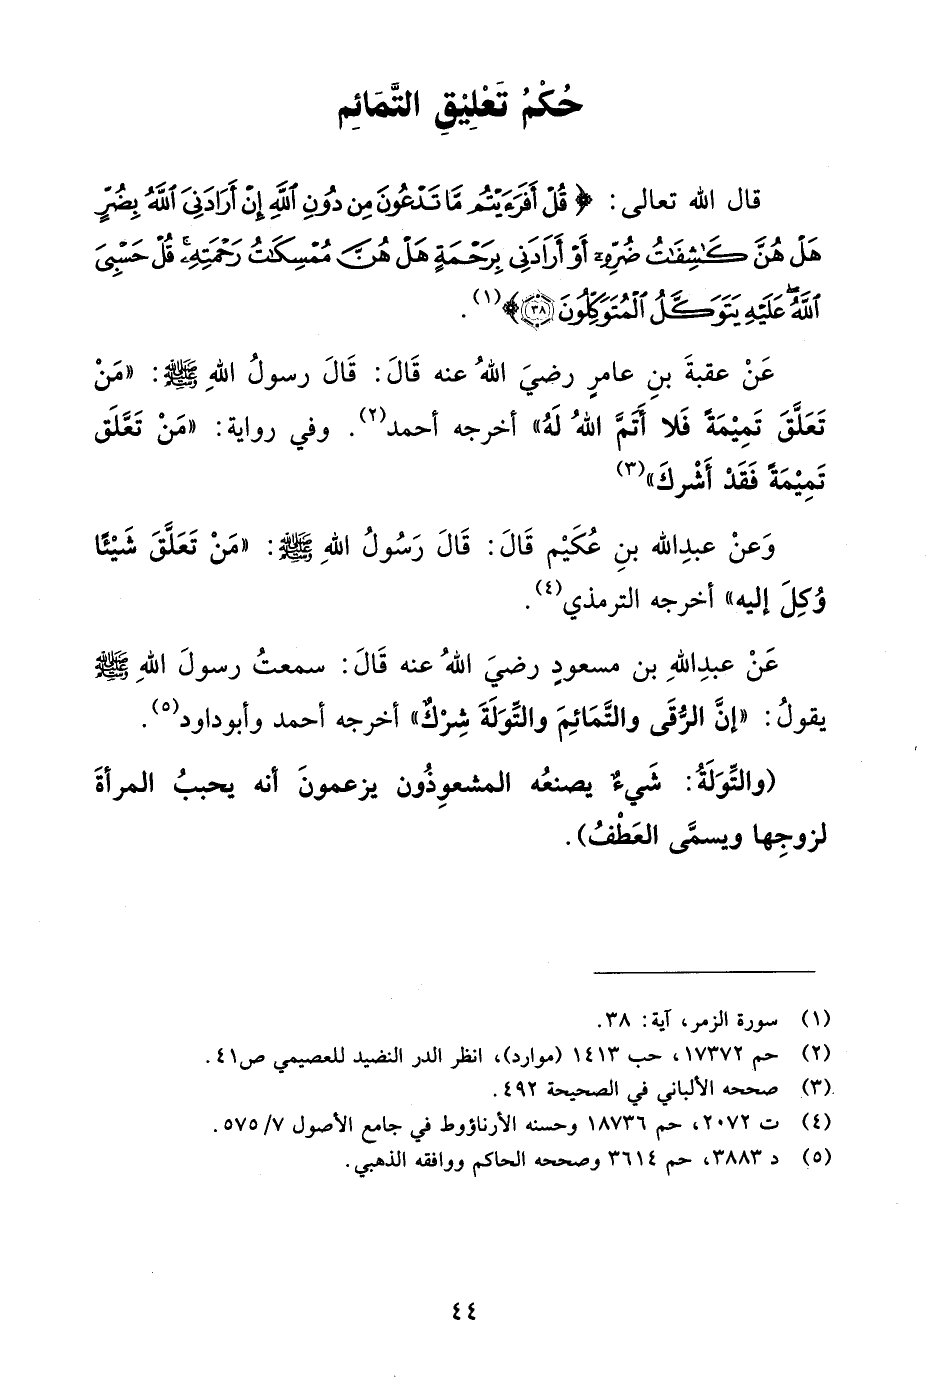 حُكْمُ تَعْلِيْقِ التَّمَائِمِ
قال الله تعالى: ﴿ قُلْ أَفَرَءَيْتُم مَّا تَدْعُونَ مِن دُونِ ٱللَّهِ إِنْ أَرَادَنِىَ ٱللَّهُ بِضُرٍّ
هَلْ هُنَّ كَٰشِفَٰتُ ضُرِّهِۦٓ أَوْ أَرَادَنِى بِرَحْمَةٍ هَلْ هُنَّ مُمْسِكَٰتُ رَحْمَتِهِۦ ۚ قُلْ حَسْبِىَ
ٱللَّهُ ۖ عَلَيْهِ يَتَوَكَّلُ ٱلْمُتَوَكِّلُونَ ۝٣٨﴾(١).
عَنْ عقبةَ بنِ عامرٍ رضيَ اللهُ عنه قَالَ: قَالَ رسولُ اللهِ ﷺ: «مَنْ
تَعَلَّقَ تَمِيْمَةً فَلا أَتَمَّ اللهُ لَهُ» أخرجه أحمد(٢). وفي رواية: «مَنْ تَعَّلَق
تَمِيْمَةً فَقَدْ أَشْركَ»(٣)
وَعنْ عبدِالله بنِ عُكَيْم قَالَ: قَالَ رَسُولُ اللهِ ﷺ: «مَنْ تَعَلَّقَ شَيْئًا
وُكِلَ إليه» أخرجه الترمذي(٤).
عَنْ عبدِاللهِ بن مسعودٍ رضيَ اللهُ عنه قَالَ: سمعتُ رسولَ اللهِ ﷺ
يقولُ: «إنَّ الرُّقَى والتَّمائِمَ والتِّوَلَةَ شِرْكٌ» أخرجه أحمد وأبوداود(٥).
(والتِّوَلَةُ: شَيءٌ يصنعُه المشعوِذُون يزعمونَ أنه يحببُ المرأةَ
لزوجِها ويسمَّى العَطْفُ).
(١) سورة الزمر، آية: ٣٨.
(٢) حم ١٧٣٧٢، حب ١٤١٣ (موارد)، انظر الدر النضيد للعصيمي ص٤١.
(٣) صححه الألباني في الصحيحة ٤٩٢.
(٤) ت ٢٠٧٢، حم ١٨٧٣٦ وحسنه الأرناؤوط في جامع الأصول ٧/ ٥٧٥.
(٥) د ٣٨٨٣، حم ٣٦١٤ وصححه الحاكم ووافقه الذهبي.
٤٤